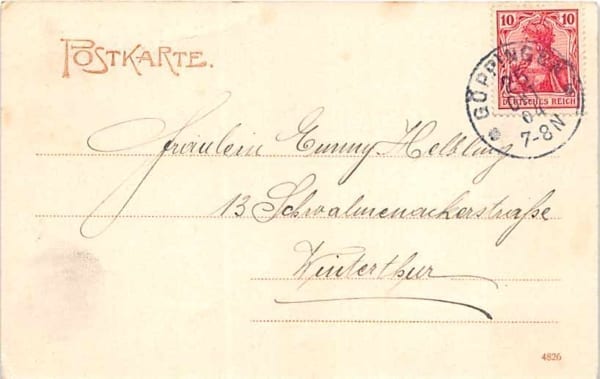 POSTKARTE.
10 10
DEUTSCHES REICH
GÖPPINGEN
25
OKT
04
7-8N
Fräulein Emmy Helbling
13 Schwalmenackerstraße
Winterthur
4826